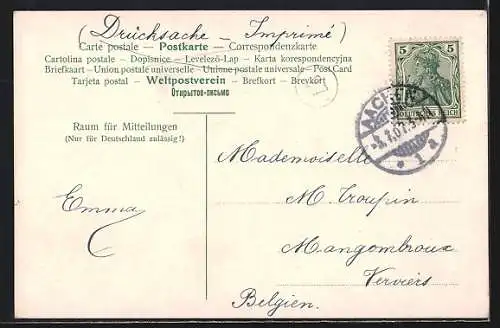 (Drücksache — Imprimé)
Carte postale — Postkarte — Correspondenzkarte
Cartolina postale — Dopisnice — Levelező-Lap — Karta korespondencyjna
Briefkaart — Union postale universelle — Unione postale universale — Post Card
Tarjeta postal — Weltpostverein — Brefkort — Brevkort
Открытое-письмо
5 5
DEUTSCHES REICH
AACHEN
3.1.07.3-4N.
* 1 *
Raum für Mitteilungen
(Nur für Deutschland zulässig!)
Emma
Mademoiselle
M. Troupin
Mangombroux
Verviers
Belgien.